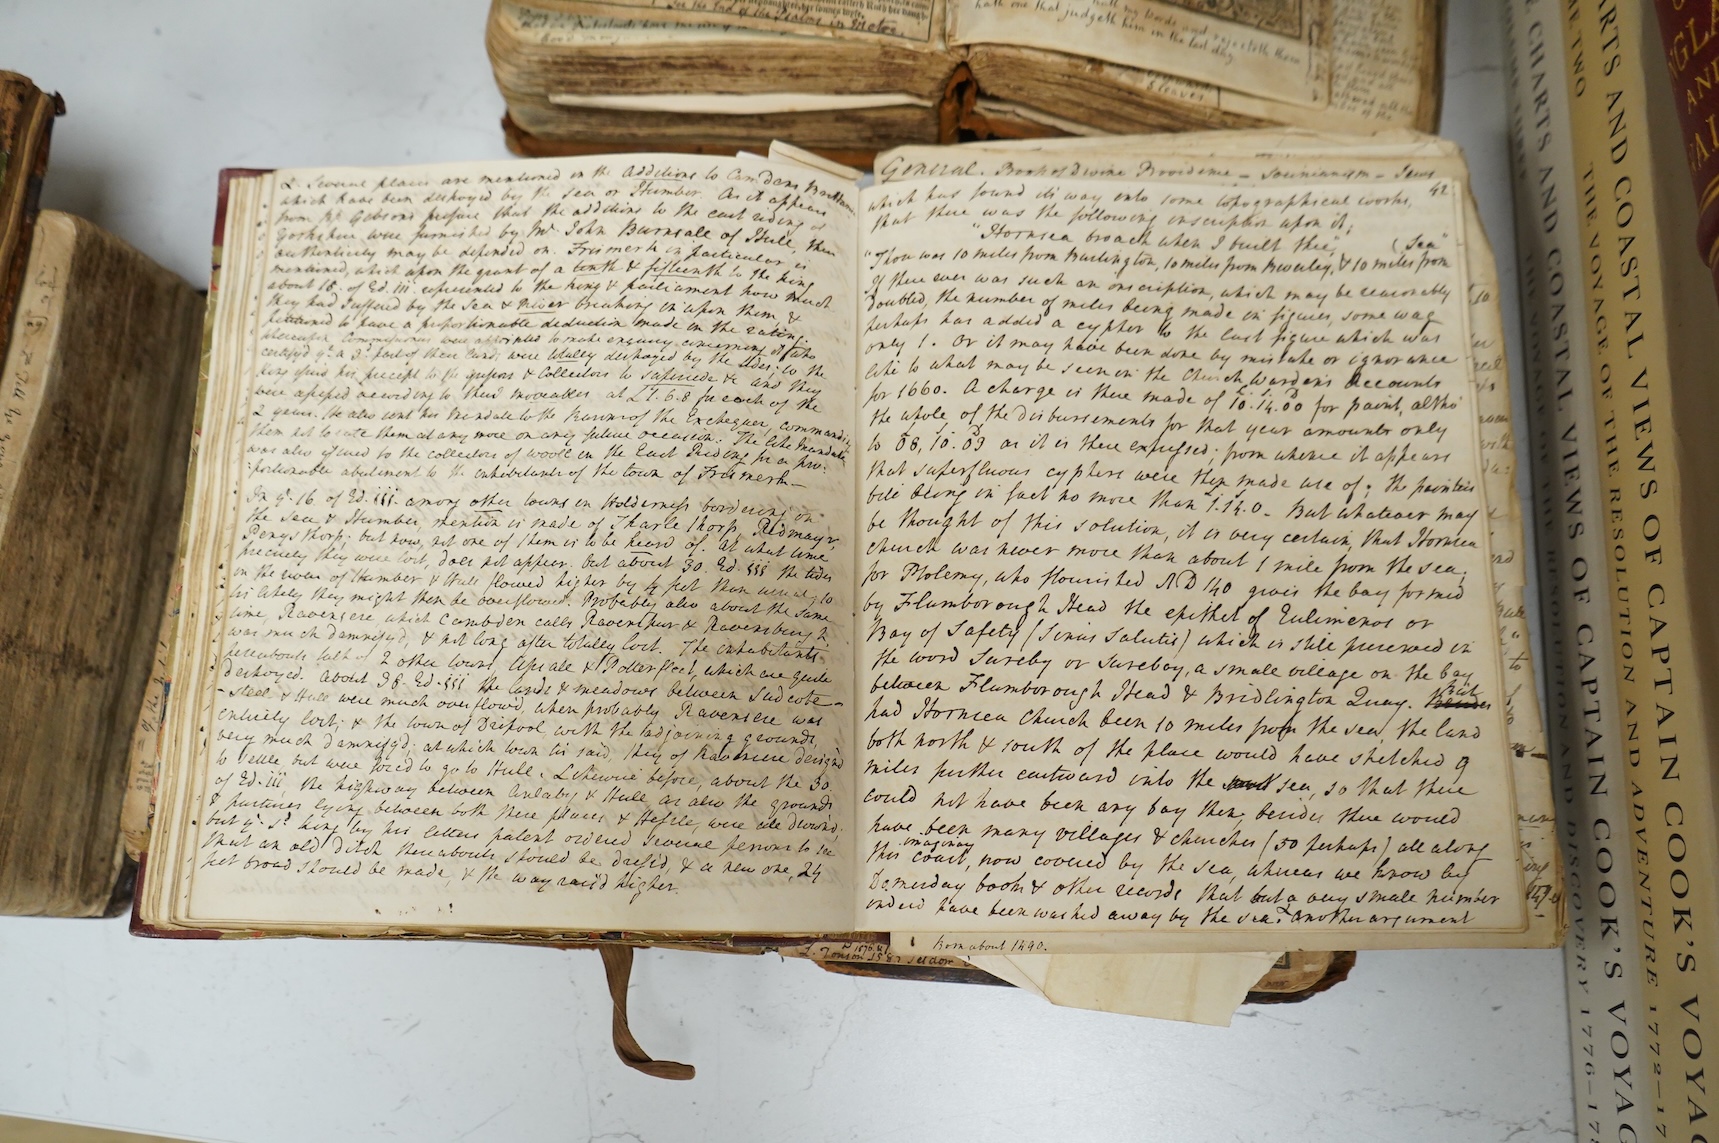 See the End of the Psalms in Metre.
hath one that judgeth him in the last day
6 leaves
2. Several places are mentioned in the Additions to Camdens Brittannia
which have been destroyed by the Sea or Humber. As it appears
from Bp. Gibsons preface that the additions to the east riding of
Yorkshire were furnished by Mr. John Burnsale of Hull, their
authenticity may be depended on. Frismerk in particular is
mentioned, which upon the grant of a tenth & fifteenth to the king
about 18. of Ed. iii. represented to the king & parliament how much
they had suffered by the Sea & River breaking in upon them &
petitioned to have a proportionable deduction made in the rating:
whereupon Commissioners were appointed to make enquiry concerning it who
certifyd yt. a 3d. part of their lands were totally destroyed by the tides; to the
king send his precept to the assessors & Collectors to supersede &c and they
were assessed according to their moveables at £1.6.8 for each of the
2 years. He also sent his Mandate to the Barons of the Exchequer, commanding
them not to rate them at any more on any future occasion. The like Mandate
was also issued to the collectors of wooll in the East Riding for a pro-
portionable abatement to the inhabitants of the town of Frismerk—
In ye. 16. of Ed. iii. among other towns in Holderness bordering on
the Sea & Humber, mention is made of Tharlesthorp, Redmayr,
Penysthorp: but now, not one of them is to be heard of. At what time
precisely they were lost, does not appear. but about 30. Ed. iii the tides
in the river of Humber & Hull flowed higher by 4 feet than usual, so
tis likely they might then be overflowed. Probably also about the same
time, Ravensere which Cambden calls Ravenspur & Ravensburgh
was much damnifyd, & not long after totally lost. The inhabitants
hereabouts talk of 2 other towns, Upsale & Potterfleet, which are quite
destroyed. About 38. Ed. iii the lands & meadows between Sudcote-
-steel & Hull were much overflowd, when probably Ravensere was
entirely lost; & the town of Dripool, with the adjoining grounds,
very much damnifyd; at which town tis said, they of Ravensere design'd
to settle but were forc'd to go to Hull. Likewise before, about the 30.
of Ed. iii, the highway between Anlaby & Hull as also the grounds
& pastures lying between both these places & Hessle, were all drownd;
but ye. sd. king by his letters patent ordered several persons to see
that an old Ditch thereabouts should be dress'd, & a new one, 24
feet broad should be made, & the way rais'd higher.
General. Book of Divine Providence — Socinianism — Jews
42
which has found its way into some topographical works,
that there was the following inscription upon it;
"Hornsea broach when I built thee, (Sea"
"Thou was 10 miles from Burlington, 10 miles from Beverley, & 10 miles from
If there ever was such an inscription, which may be reasonably
doubted, the number of miles being made in figures, some wag
perhaps has added a cypher to the last figure which was
only 1. Or it may have been done by mistake or ignorance
like to what may be seen in the Church Wardens accounts
for 1660. A charge is there made of 10.14.00 for paint, altho'
the whole of the disbursements for that year amounts only
to 08, 10. 03 as it is there expressed; from whence it appears
that superfluous cyphers were then made use of; the painters
bill being in fact no more than 1.14.0. But whatever may
be thought of this solution, it is very certain, that Hornsea
church was never more than about 1 mile from the sea;
for Ptolemy, who flourished AD 140 gives the bay formed
by Flamborough Head the epithet of Eulimenos or
Bay of Safety (Sinus Salutis) which is still preserved in
the word Sureby or Surebay, a small village on the bay
between Flamborough Head & Bridlington Quay. But
had Hornsea Church been 10 miles from the sea, the land
both north & south of the place would have stretched 9
miles further eastward into the sea, so that there
could not have been any bay then; besides there would
have been many villages & churches (50 perhaps) all along
this imaginary coast, now covered by the sea, whereas we know by
Domesday book & other records that but a very small number
indeed have been washed away by the sea. Another argument
Born about 1490.
ARTS AND COASTAL VIEWS OF CAPTAIN COOK'S VOYAG
THE VOYAGE OF THE RESOLUTION AND ADVENTURE 1772–1
CHARTS AND COASTAL VIEWS OF CAPTAIN COOK'S VOYAG
VOLUME THREE THE VOYAGE OF THE RESOLUTION AND DISCOVERY 1776–17